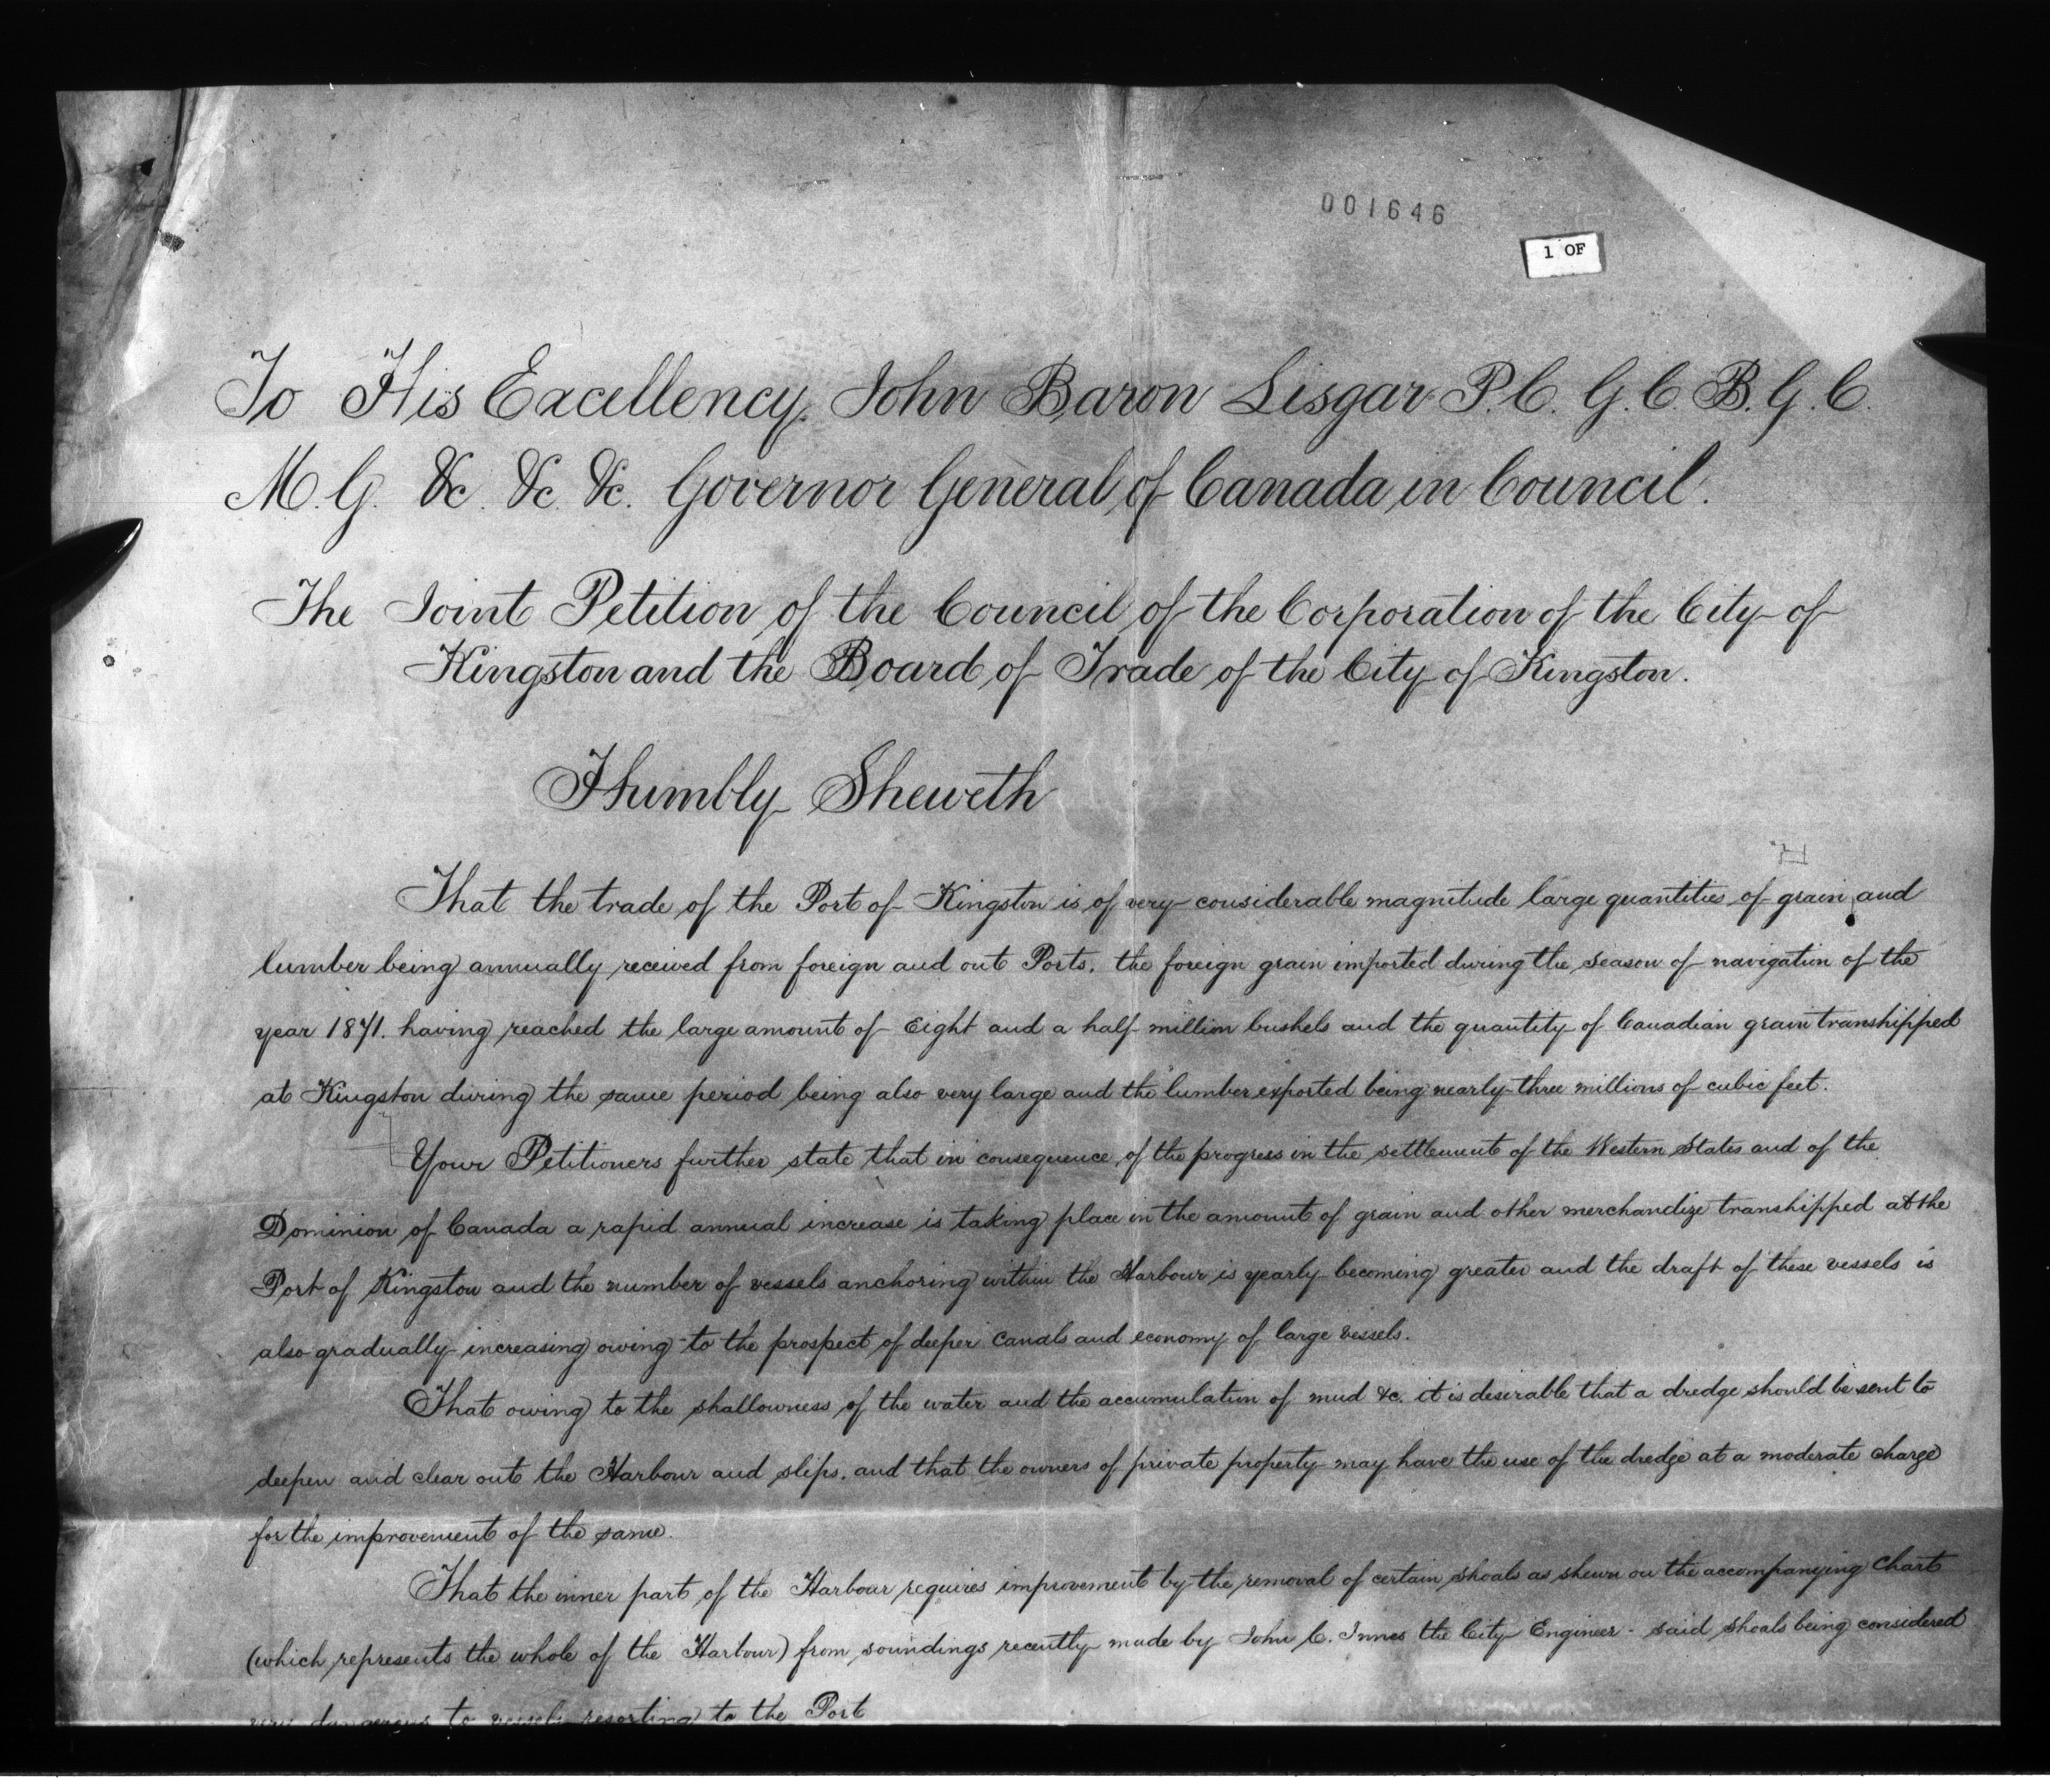 001646
1 OF
To His Excellency John Baron Lisgar P.C. G.C.B. G.C.
M.G. &c. &c. &c. Governor General of Canada in Council.
The Joint Petition of the Council of the Corporation of the City of
Kingston and the Board of Trade of the City of Kingston.
Humbly Sheweth
That the trade of the Port of Kingston is of very considerable magnitude large quantities of grain and
lumber being annually received from foreign and out Ports. the foreign grain imported during the season of navigation of the
year 1871. having reached the large amount of Eight and a half million bushels and the quantity of Canadian grain transhipped
at Kingston during the same period being also very large and the lumber exported being nearly three millions of cubic feet.
Your Petitioners further state that in consequence of the progress in the settlement of the Western States and of the
Dominion of Canada a rapid annual increase is taking place in the amount of grain and other merchandize transhipped at the
Port of Kingston and the number of vessels anchoring within the Harbour is yearly becoming greater and the draft of these vessels is
also gradually increasing owing to the prospect of deeper canals and economy of large vessels.
That owing to the shallowness of the water and the accumulation of mud &c. it is desirable that a dredge should be sent to
deepen and clear out the Harbour and slips. and that the owners of private property may have the use of the dredge at a moderate charge
for the improvement of the same.
That the inner part of the Harbour requires improvement by the removal of certain shoals as shewn on the accompanying Chart
(which represents the whole of the Harbour) from soundings recently made by John C. Innes the City Engineer - said shoals being considered
very dangerous to vessels resorting to the Port